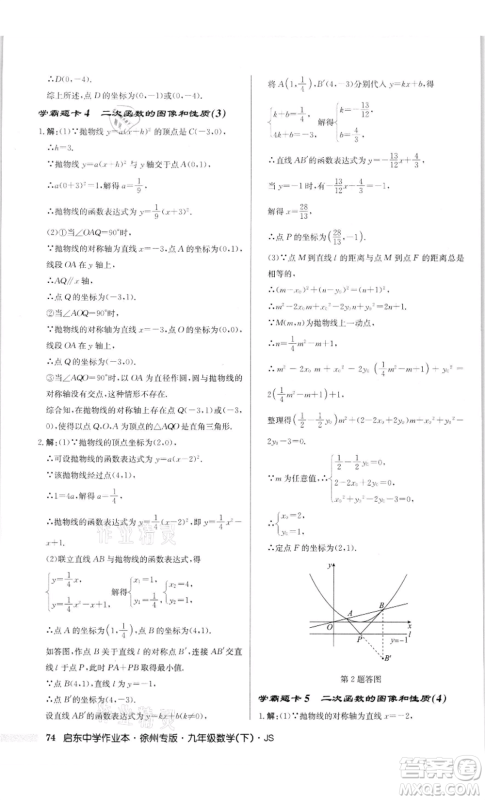 ∴D(0,-4).
综上所述,点D的坐标为(0,4)或(0,-4).
学霸题卡 4 二次函数的图像和性质(3)
1.解:(1)∵抛物线y=a(x-h)²的顶点是C(-3,0),
∴h=-3.
∵抛物线y=a(x-h)²与y轴交于点A(0,1),
∴a(0+3)²=1,解得a=1/9.
∴抛物线的函数表达式为y=1/9(x+3)².
(2)①当∠OAQ=90°时,
∵抛物线的对称轴为直线x=-3,点A的坐标为(0,1),线段OA在y轴上,
∴点Q的坐标为(-3,1).
②当∠AOQ=90°时,
∵抛物线的对称轴为直线x=-3,点O的坐标为(0,0),线段OA在y轴上,
∴点Q的坐标为(-3,0).
③当∠AQO=90°时,以OA为直径作圆,圆与抛物线的对称轴没有交点,这种情形不存在.
综合知,抛物线的对称轴上存在点(-3,0)或(-3,1),使得以点A,O,Q为顶点的△AOQ为直角三角形.
2.解:(1)∵抛物线的顶点坐标为(2,0),
∴可设抛物线的函数表达式为y=a(x-2)².
∵该抛物线经过点(4,1),
∴1=4a,解得a=1/4.
∴抛物线的函数表达式为y=1/4(x-2)².
(2)联立直线AB与抛物线的函数表达式,得
{y=1/4x, y=1/4(x-2)². 解得{x₁=1, y₁=1/4, {x₂=4, y₂=1.
∴点A的坐标为(1,1/4),点B的坐标为(4,1).
如答图,作点B关于直线l的对称点B′,连接AB′交l于点P,此时PA+PB取得最小值.
∵点B(4,1),直线l为y=-1,
∴点B′的坐标为(4,-3).
设直线AB′的函数表达式为y=kx+b(k≠0),
将A(1,1/4),B′(4,-3)分别代入y=kx+b,得
{k+b=1/4, 4k+b=-3. 解得{k=-13/12, b=4/3.
∴直线AB′的函数表达式为y=-13/12x+4/3.
当y=-1时,有-13/12x+4/3=-1,
解得x=28/13.
∴点P的坐标为(28/13,-1).
(3)∵点M到直线l的距离与点M到点F的距离总是相等的,
∴(m-x₀)²+(n-y₀)²=(n+1)².
∴m²-2x₀m+x₀²-2y₀n+y₀²=2n+1.
∵M(m,n)为抛物线上一动点,
∴n=1/4m²-m+1.
∴m²-2x₀m+x₀²-2y₀(1/4m²-m+1)+y₀²=2(1/4m²-m+1)+1.
整理得(1/2-1/2y₀)m²+(2-2x₀+2y₀)m+x₀²+y₀²-2y₀-3=0.
∵m为任意值,∴{1/2-1/2y₀=0, 2-2x₀+2y₀=0, x₀²+y₀²-2y₀-3=0.
∴{x₀=2, y₀=1.
∴定点F的坐标为(2,1).
y
A
B
O
x
P
y=-1
l
B′
第2题答图
学霸题卡 5 二次函数的图像和性质(4)
1.解:∵抛物线的对称轴为直线x=-2,
74 启东中学作业本·徐州专版·九年级数学(下)·JS